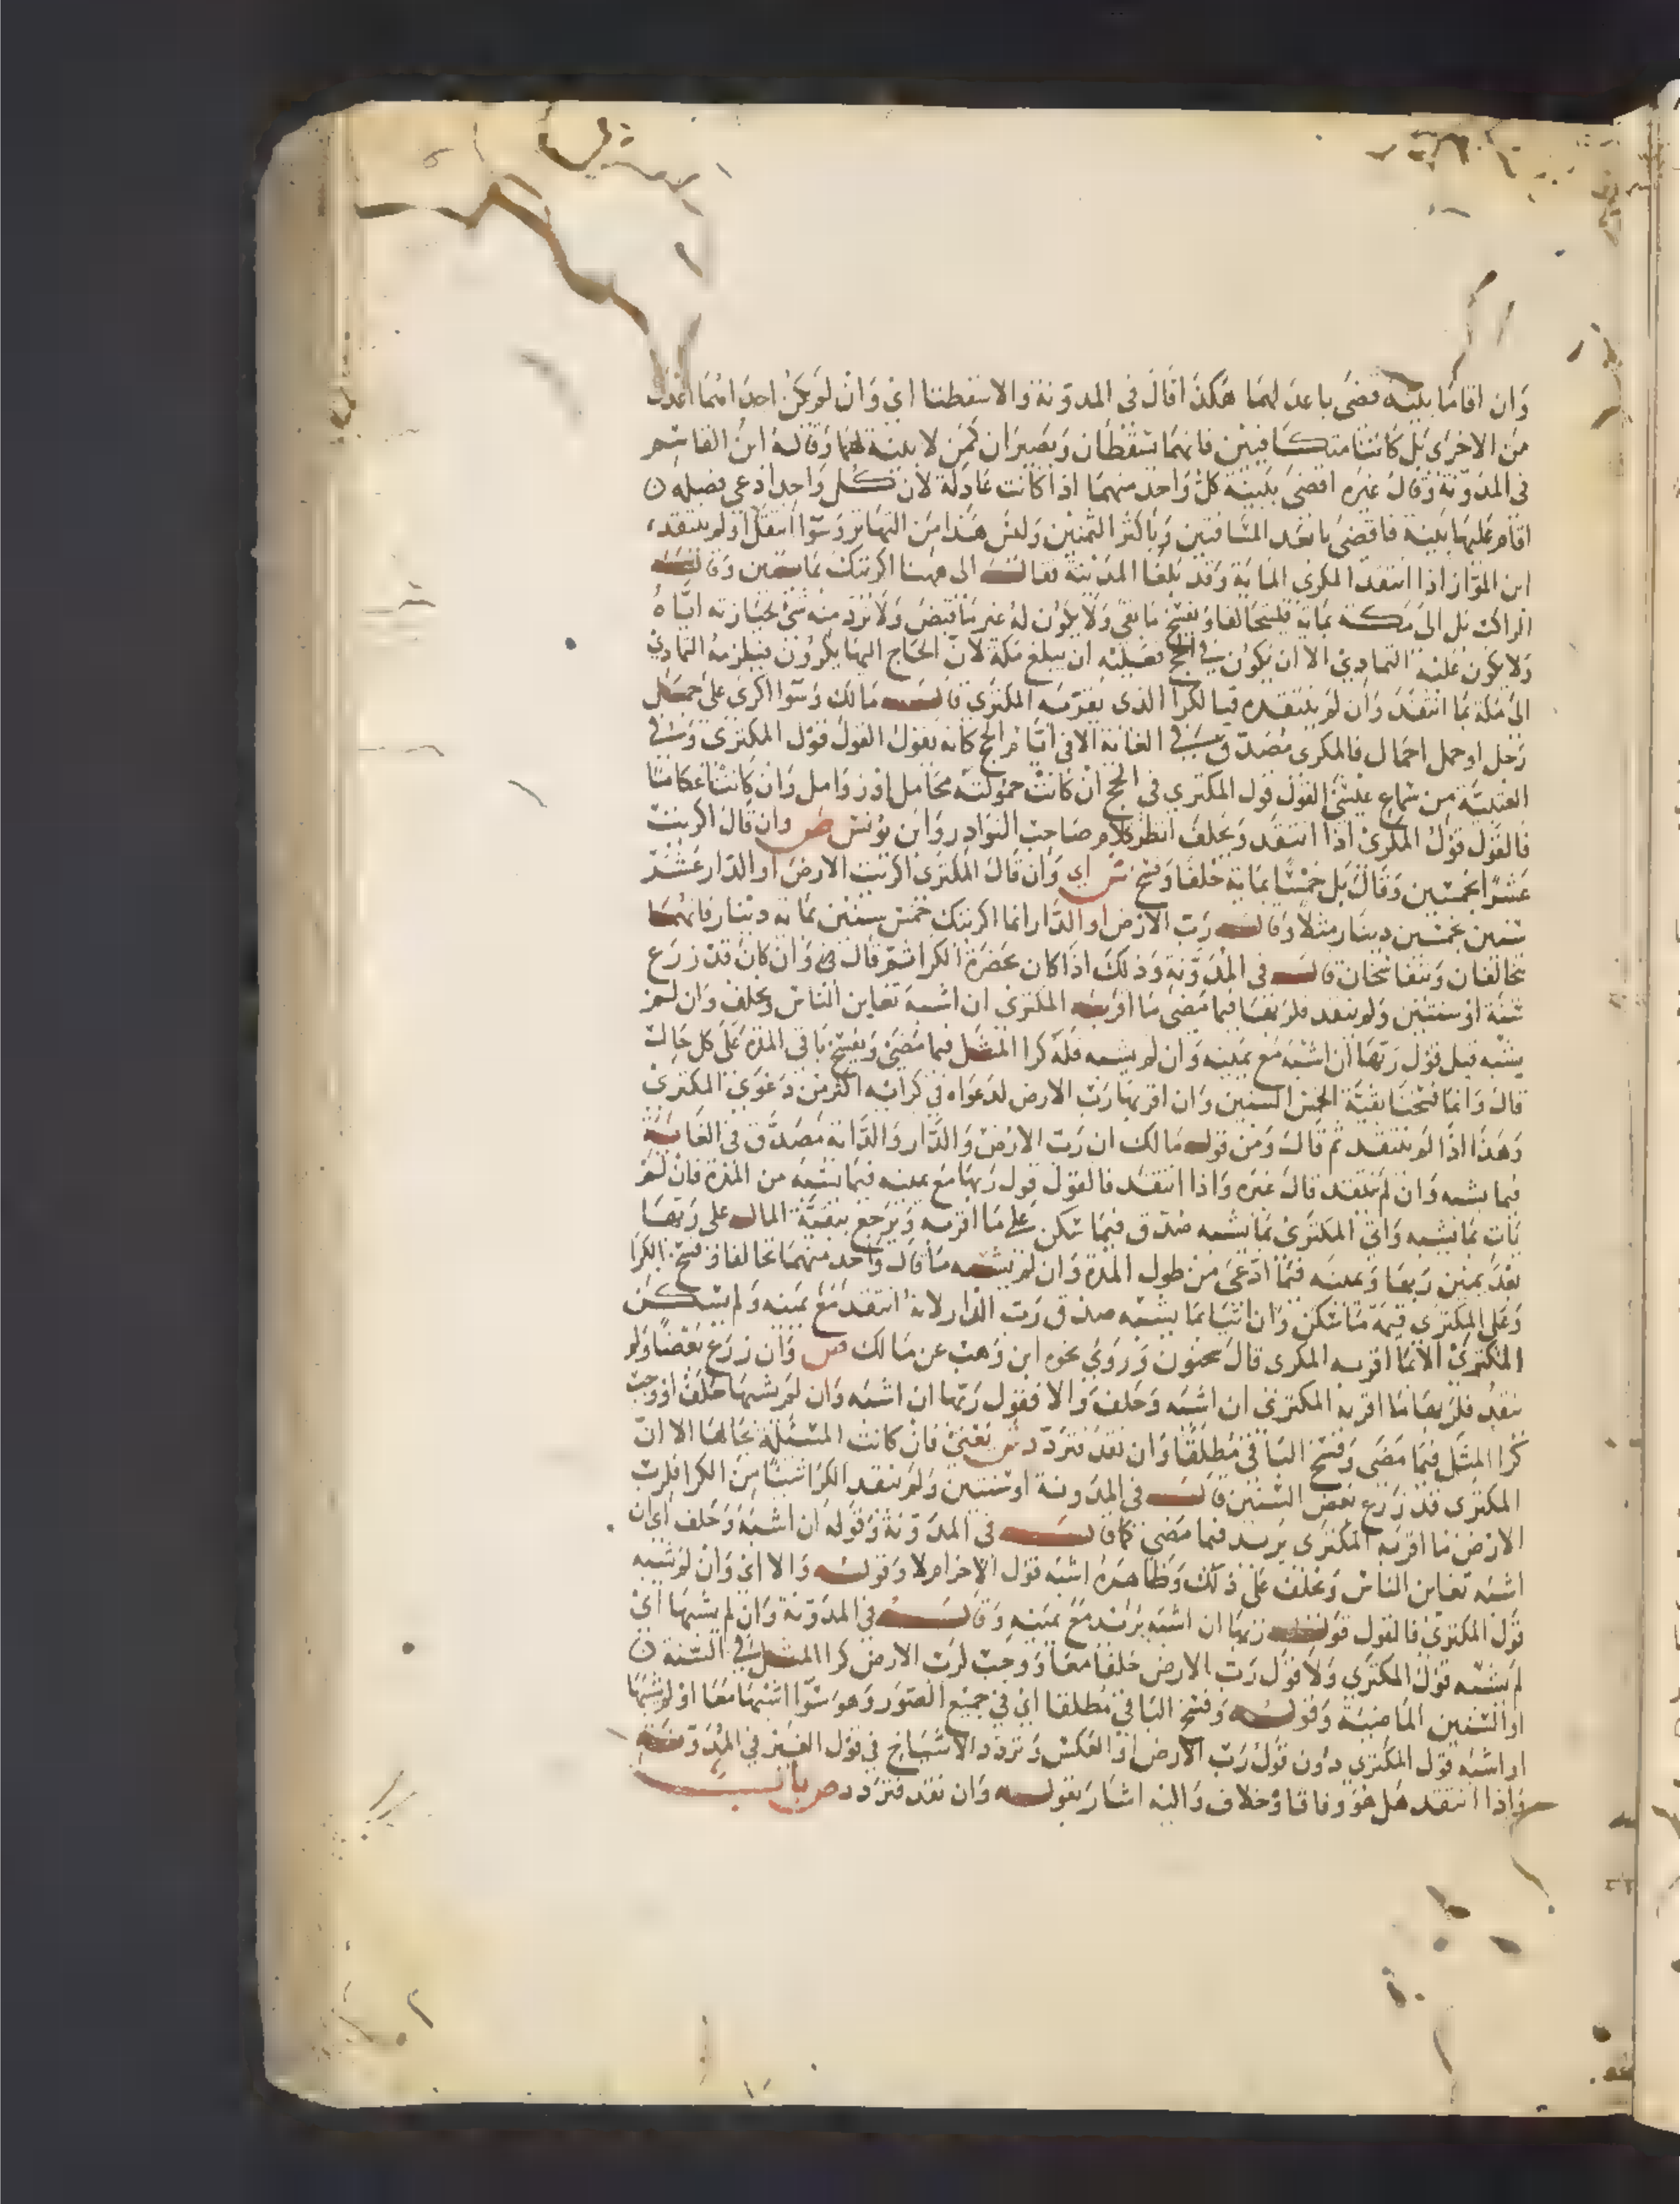 وان اقاما بينة قضى باعدلهما هكذا قال في المدونة والا سقطتا اي وان لم يكن احداهما اعدل
من الاخرى بل كانتا متكافيتين فانهما تسقطان ويصيران كمن لا بينة لهما وقاله ابن القاسم
في المدونة وقال غيره اقضى ببينة كل واحد منهما اذا كانت عادلة لان كل واحد ادعى فضله ن
اقام عليها بينة فاقضى بابعد المسافتين وباكثر الثمنين وليس هذا من التهاتر وسوا انتقد او لم ينتقد
ابن المواز اذا انتقد المكري الماية وقد بلغا المدينة فقال الى ههنا اكريتك بمايتين وقال
الراكب بل الى مكة بماية فليتحالفا ويفسخ ما بقي ولا يكون له غير ما قبض ولا يرد منه شي لحيازته اياه
ولا يكون عليه التمادي الا ان يكون في الحج فعليه ان يبلغ مكة لان الحاج اليها يكرون فيلزمه التمادي
الى مكة بما انتقد وان لم ينتقده فبالكرا الذي يقر به المكتري قال مالك وسوا اكرى على حمل
رجل او حمل احمال فالمكري مصدق في الغاية الا في ايام الحج كانه يقول القول قول المكتري وفي
العتبية من سماع عيسى القول قول المكتري في الحج ان كانت حمولته محامل او زوامل وان كانت اعكاما
فالقول قول المكري اذا انتقد ويحلف انظر كلام صاحب النوادر وابن يونس ص وان قال اكريت
عشرا بخمسين وقال بل خمسا بماية حلفا وفسخ ش اي وان قال المكتري اكريت الارض او الدار عشر
سنين بخمسين دينار مثلا وقال رب الارض او الدار انما اكريتك خمس سنين بماية دينار فانهما
يتحالفان ويتفاسخان قال في المدونة وذلك اذا كان بحضرة الكرا ثم قال فيها وان كان قد زرع
سنة او سنتين ولم ينقد فلربها فيما مضى ما اقر به المكتري ان اشبه تغابن الناس ويحلف وان لم
يشبه قبل قول ربها ان اشبه مع يمينه وان لم يشبه فله كرا المثل فيما مضى ويفسخ باقي المدة على كل حال
قال وانما فسخنا بقية الخمس السنين وان اقر بها رب الارض لدعواه في كرايه اكثر من دعوى المكتري
وهذا اذا لم ينتقد ثم قال ومن قول مالك ان رب الارض والدار والدابة مصدق في الغاية
فيما يشبه وان لم ينتقد قال غيره واذا انتقد فالقول قول ربها مع يمينه فيما يشبه من المدة فان لم
يات بما يشبه واتى المكتري بما يشبه صدق فيما سكن على ما اقر به ويرجع ببقية المال على ربها
بعد يمين ربها ويمينه فيما ادعى من طول المدة وان لم يشبه ما قال واحد منهما تحالفا وفسخ الكرا
وعلى المكتري قيمة ما سكن وان اتيا بما يشبه صدق رب الدار لانه انتقد مع يمينه ولم يسكن
المكتري الا ما اقر به المكري قال سحنون وروى نحوه ابن وهب عن مالك ص وان زرع بعضا ولم
ينقد فلربها ما اقر به المكتري ان اشبه وحلف والا فقول ربها ان اشبه وان لم يشبها حلفا ووجب
كرا المثل فيما مضى وفسخ الباقي مطلقا وان نقد فتردد ش يعني فان كانت المسئلة بحالها الا ان
المكتري قد زرع بعض السنين قال في المدونة او سنتين ولم ينقد الكرا شيئا من الكرا فلرب
الارض ما اقر به المكتري يريد فيما مضى كما قال في المدونة وقوله ان اشبه وحلف اي ان
اشبه تغابن الناس ويحلف على ذلك وظاهره اشبه قول الاخر ام لا وقوله والا اي وان لم يشبه
قول المكتري فالقول قول ربها ان اشبه يريد مع يمينه وقال في المدونة وان لم يشبها اي
لم يشبه قول المكتري ولا قول رب الارض حلفا معا ووجب لرب الارض كرا المثل في السنة ن
او السنين الماضية وقوله وفسخ الباقي مطلقا اي في جميع الصور وهو سوا اشبها معا او لم يشبها
او اشبه قول المكتري دون قول رب الارض او العكس وتردد الاشياخ في قول الغير في المدونة
واذا انتقد هل هو وفاق او خلاف واليه اشار بقوله وان نقد فتردد ص باب